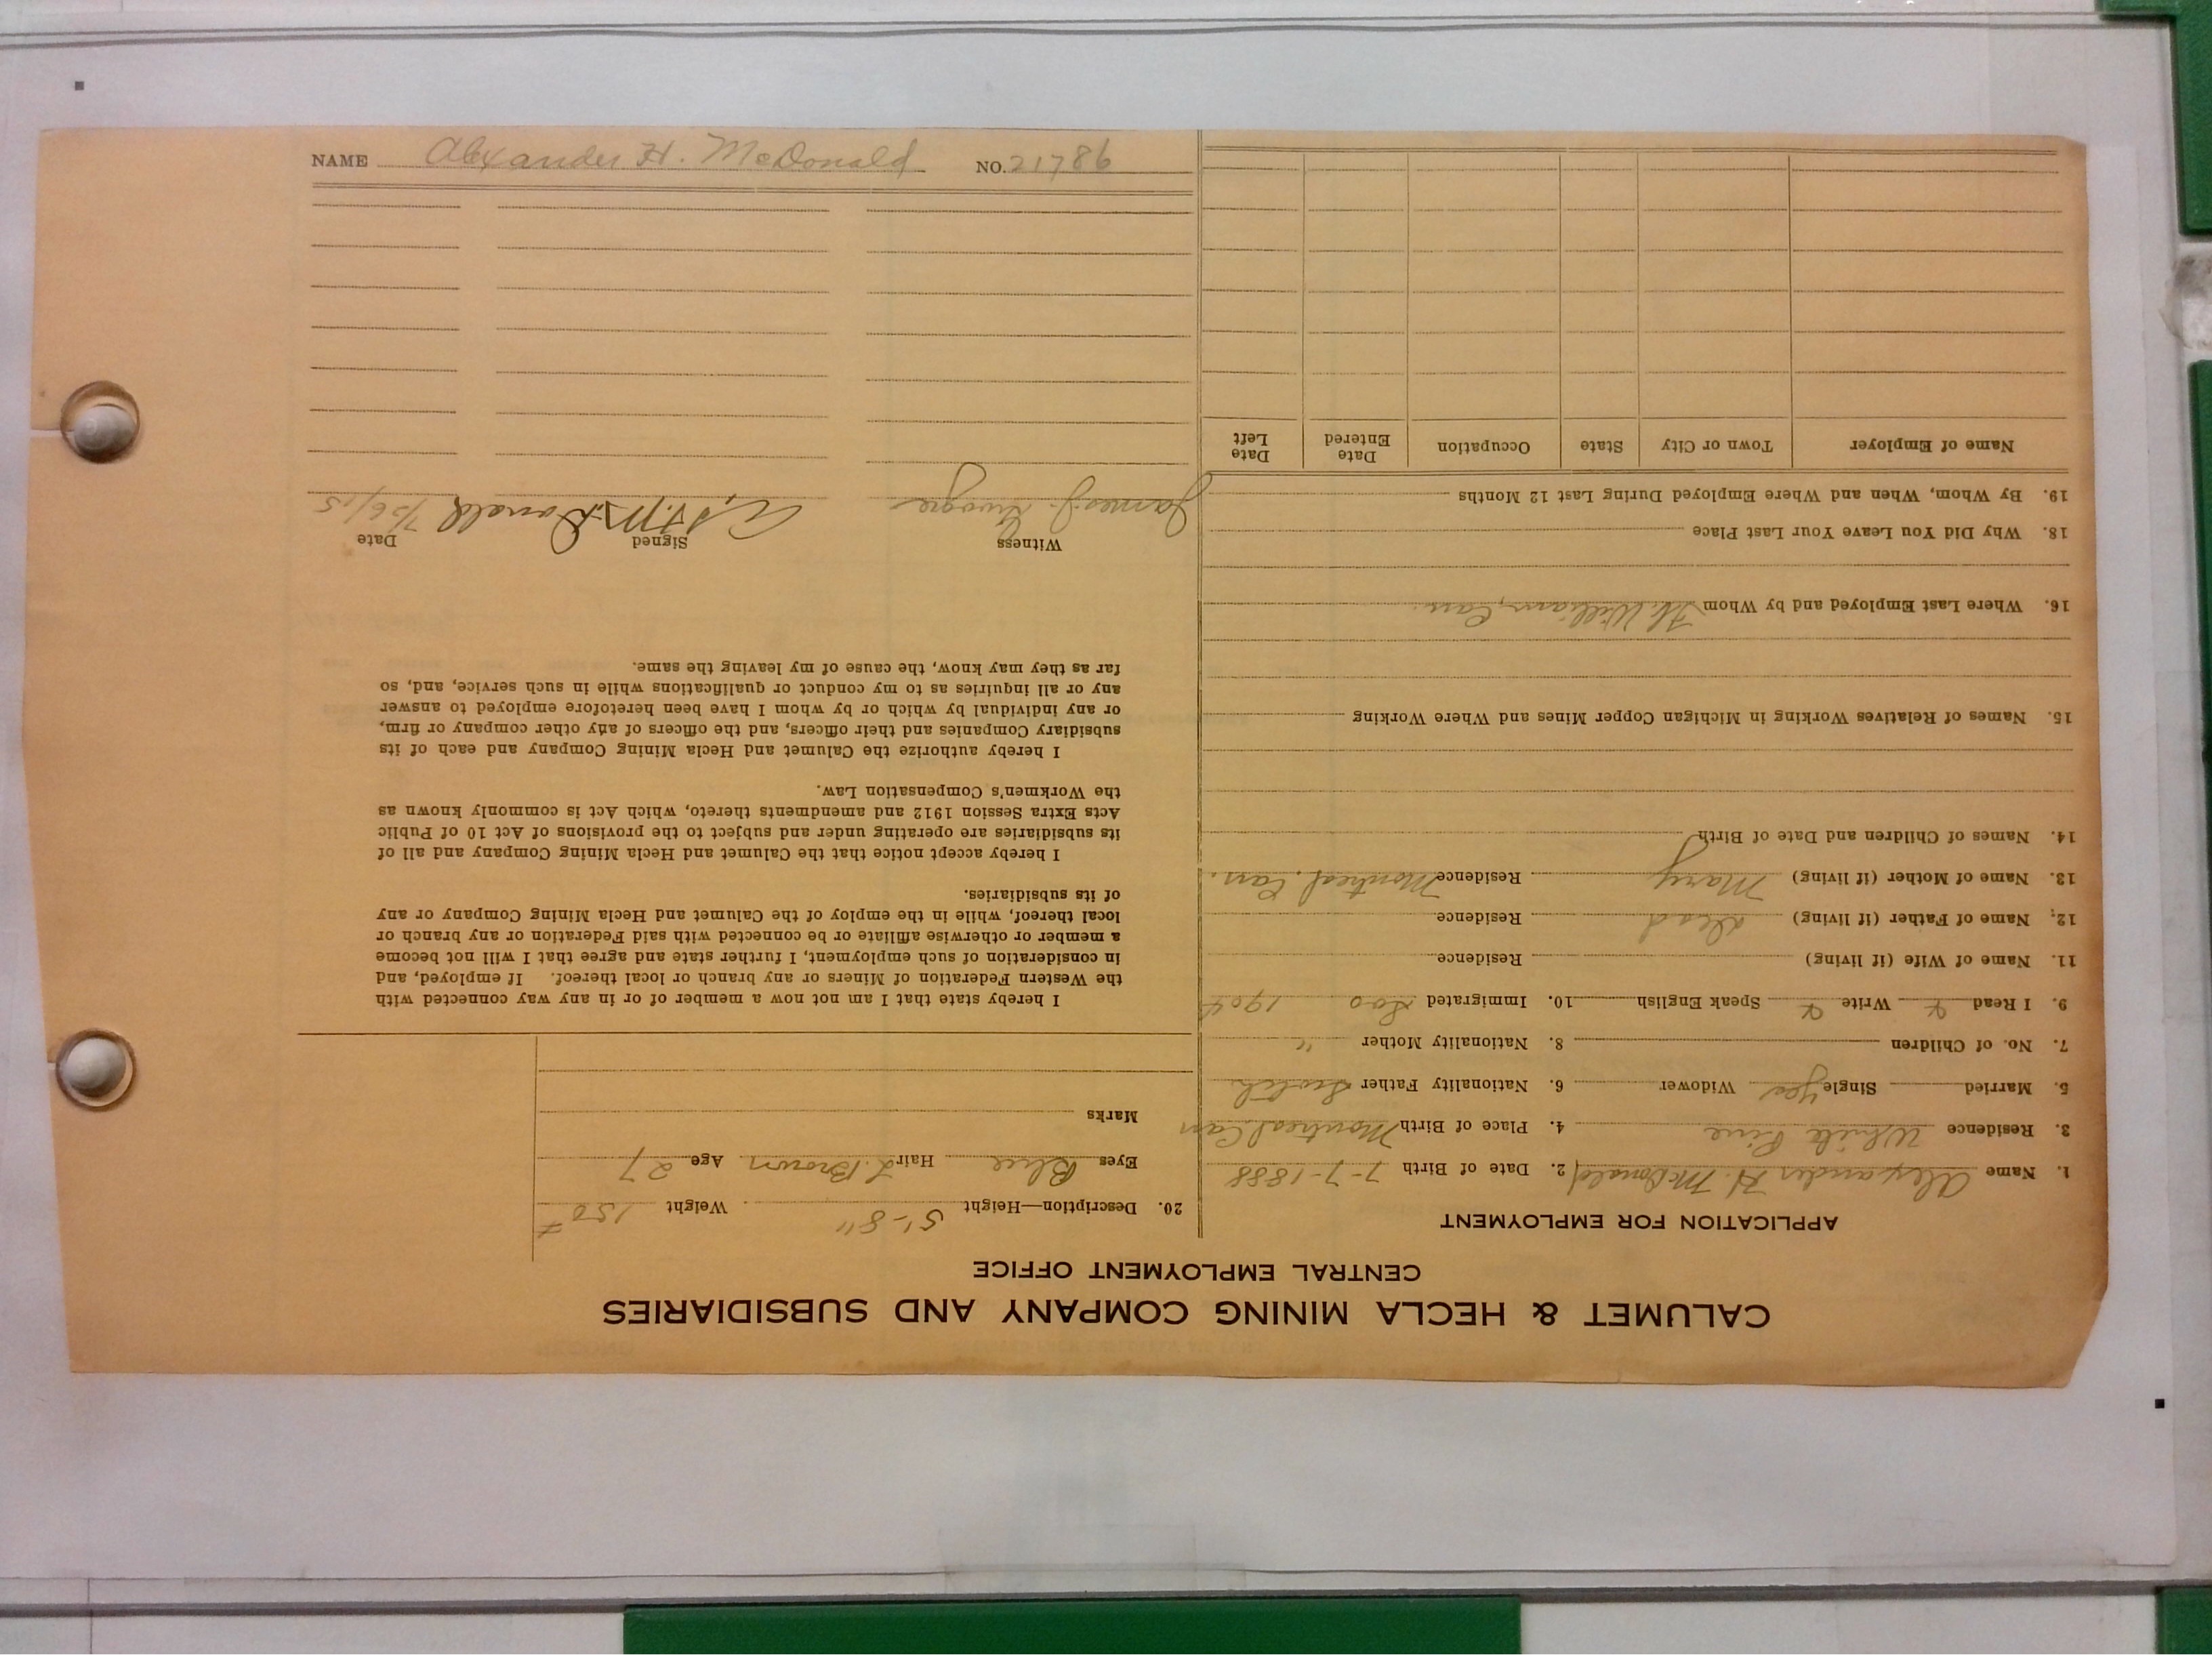 CALUMET & HECLA MINING COMPANY AND SUBSIDIARIES
CENTRAL EMPLOYMENT OFFICE
APPLICATION FOR EMPLOYMENT
1. Name Alexander H. McDonald 2. Date of Birth 7-7-1888
3. Residence White Pine 4. Place of Birth Montreal Can
5. Married Single Yes Widower 6. Nationality Father Scotch
7. No. of Children 8. Nationality Mother "
9. I Read Write Speak English 10. Immigrated Soo 1904
11. Name of Wife (if living) Residence
12. Name of Father (if living) Dead Residence
13. Name of Mother (if living) Mary Residence Montreal. Can.
14. Names of Children and Date of Birth
15. Names of Relatives Working in Michigan Copper Mines and Where Working
16. Where Last Employed and by Whom Ft. William, Can.
18. Why Did You Leave Your Last Place
19. By Whom, When and Where Employed During Last 12 Months
Name of Employer Town or City State Occupation Date Entered Date Left
20. Description—Height 5'-8" Weight 150#
Eyes Blue Hair L. Brown Age 27
Marks
I hereby state that I am not now a member of or in any way connected with
the Western Federation of Miners or any branch or local thereof. If employed, and
in consideration of such employment, I further state and agree that I will not become
a member or otherwise affiliate or be connected with said Federation or any branch or
local thereof, while in the employ of the Calumet and Hecla Mining Company or any
of its subsidiaries.
I hereby accept notice that the Calumet and Hecla Mining Company and all of
its subsidiaries are operating under and subject to the provisions of Act 10 of Public
Acts Extra Session 1912 and amendments thereto, which Act is commonly known as
the Workmen's Compensation Law.
I hereby authorize the Calumet and Hecla Mining Company and each of its
subsidiary Companies and their officers, and the officers of any other company or firm,
or any individual by which or by whom I have been heretofore employed to answer
any or all inquiries as to my conduct or qualifications while in such service, and, so
far as they may know, the cause of my leaving the same.
Witness Signed Date
James J. A. H. McDonald 7/26/15
NAME Alexander H. McDonald NO. 21786